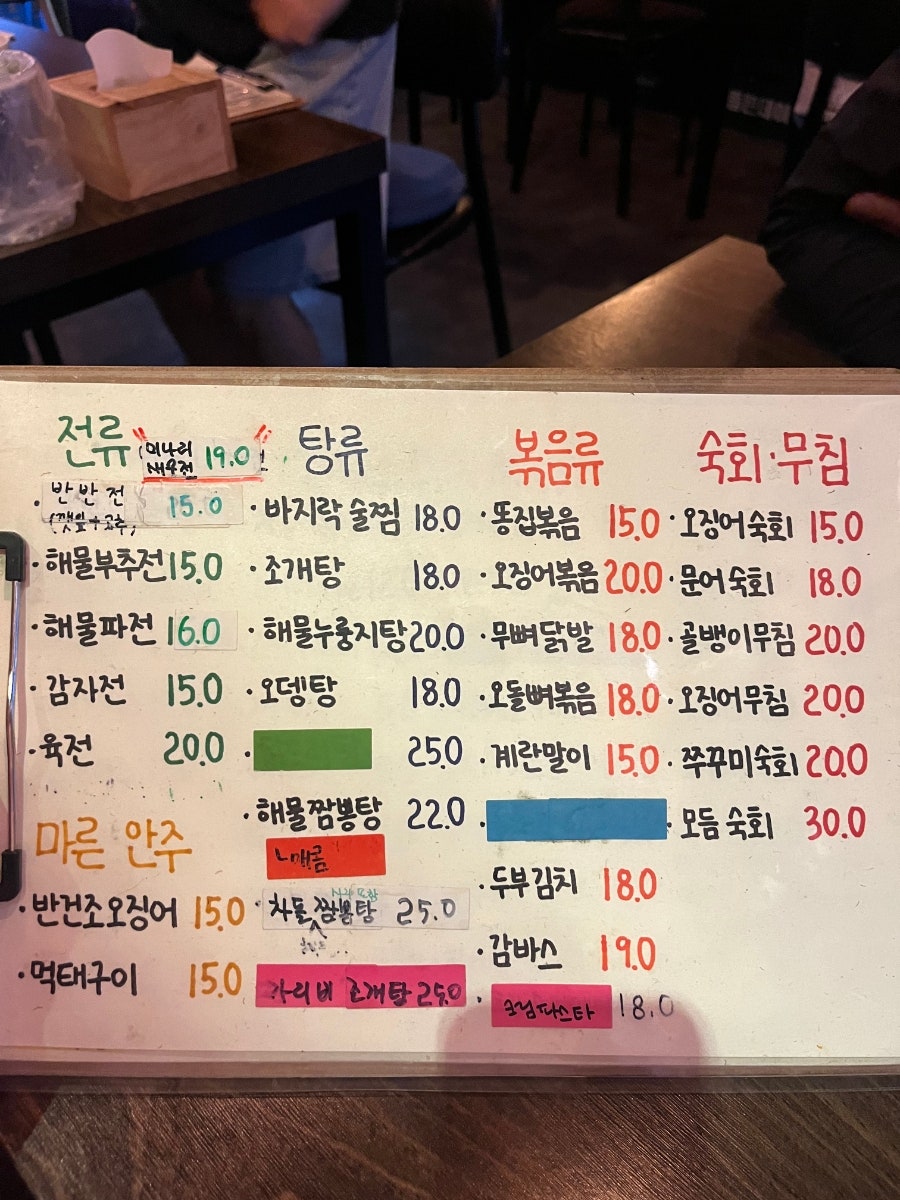 전류
미나리
새우전 19.0
· 반반전 15.0
(깻잎+고추)
· 해물부추전 15.0
· 해물파전 16.0
· 감자전 15.0
· 육전 20.0
마른 안주
· 반건조오징어 15.0
· 먹태구이 15.0
탕류
· 바지락 술찜 18.0
· 조개탕 18.0
· 해물누룽지탕 20.0
· 오뎅탕 18.0
· 25.0
· 해물짬뽕탕 22.0
매콤
차돌 짬뽕탕 25.0
가리비 조개탕 25.0
볶음류
· 똥집볶음 15.0
· 오징어볶음 20.0
· 무뼈닭발 18.0
· 오돌뼈볶음 18.0
· 계란말이 15.0
·
· 두부김치 18.0
· 감바스 19.0
· 크림파스타 18.0
숙회·무침
· 오징어숙회 15.0
· 문어숙회 18.0
· 골뱅이무침 20.0
· 오징어무침 20.0
· 쭈꾸미숙회 20.0
· 모듬 숙회 30.0